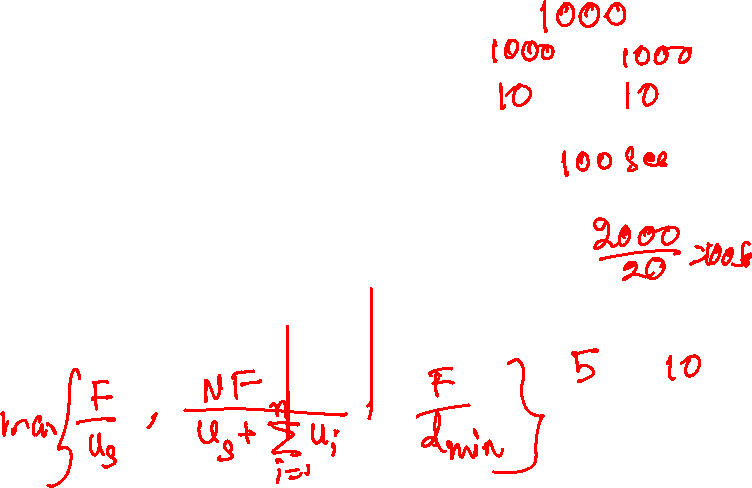 1000
1000 1000
10 10
100 sec
2000/20 = 100s
5 10
max { F/u_s , NF/(u_s + \sum_{i=1}^{n} u_i) , F/d_min }